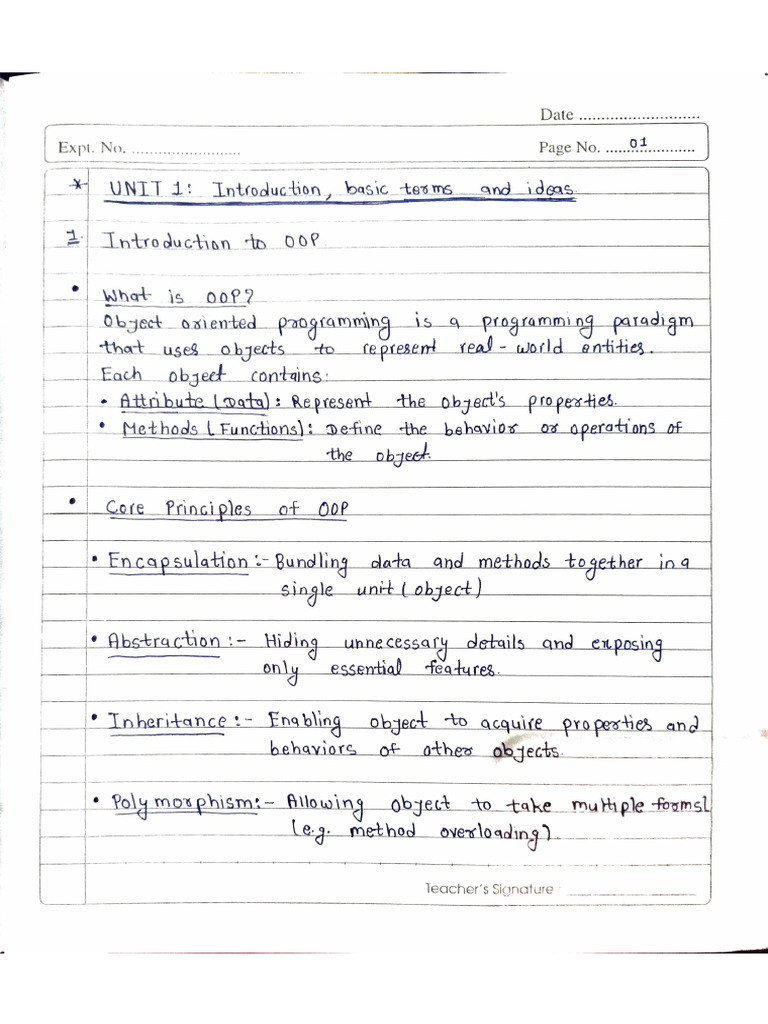 Date ...........................
Expt. No. .........................
Page No. ...... 01 ..............
* UNIT 1: Introduction, basic terms and ideas.
1. Introduction to OOP.
• What is OOP?
Object oriented programming is a programming paradigm
that uses objects to represent real-world entities.
Each object contains:
• Attribute (Data): Represent the object's properties.
• Methods (Functions): Define the behavior or operations of
the object.
• Core Principles of OOP
• Encapsulation :- Bundling data and methods together in a
single unit (object)
• Abstraction :- Hiding unnecessary details and exposing
only essential features.
• Inheritance :- Enabling object to acquire properties and
behaviors of other objects.
• Polymorphism :- Allowing object to take multiple forms
(e.g. method overloading)
Teacher's Signature